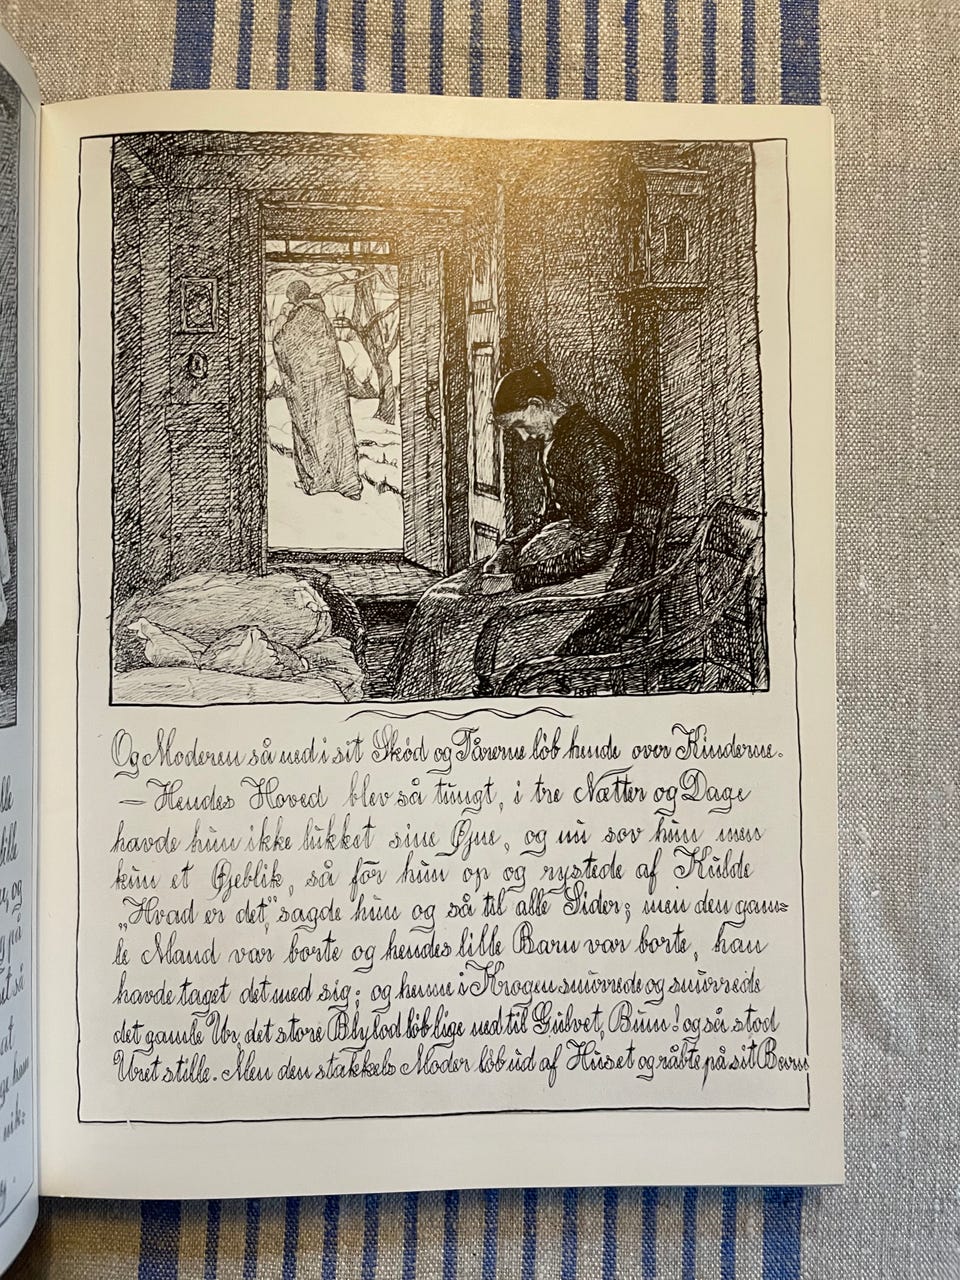 Og Moderen så ned i sit Skød og Tårerne løb hende over Kinderne.
— Hendes Hoved blev så tungt, i tre Nætter og Dage
havde hun ikke lukket sine Øjne, og nu sov hun men
kun et Øjeblik, så fór hun op og rystede af Kulde
„Hvad er det,“ sagde hun og så til alle Sider; men den gam=
le Mand var borte og hendes lille Barn var borte, han
havde taget det med sig; og henne i Krogen snurrede og snurrede
det gamle Ur, det store Blylod løb lige ned til Gulvet, Bum! og så stod
Uret stille. Men den stakkels Moder løb ud af Huset og råbte på sit Barn